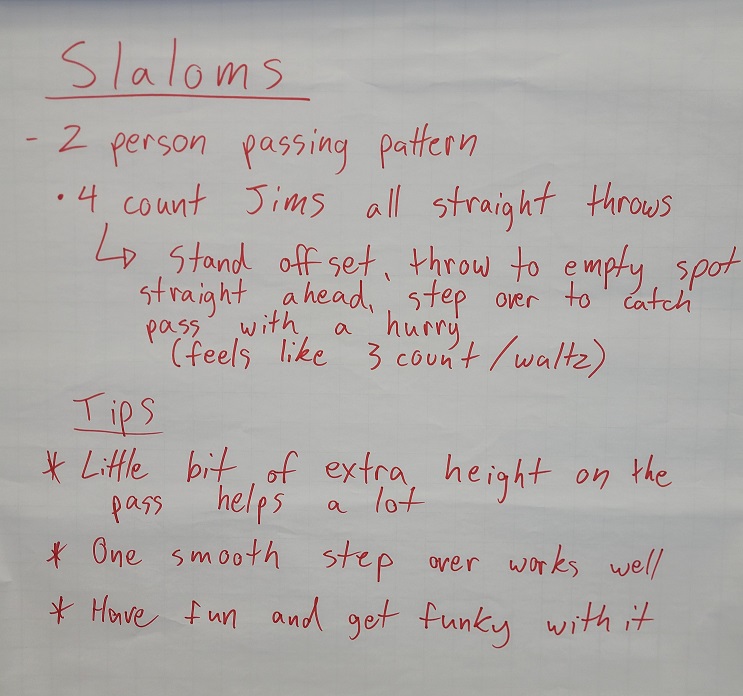 Slaloms
- 2 person passing pattern
• 4 count Jims all straight throws
↳ Stand offset, throw to empty spot
straight ahead, step over to catch
pass with a hurry
(feels like 3 count / waltz)
Tips
* Little bit of extra height on the
pass helps a lot
* One smooth step over works well
* Have fun and get funky with it